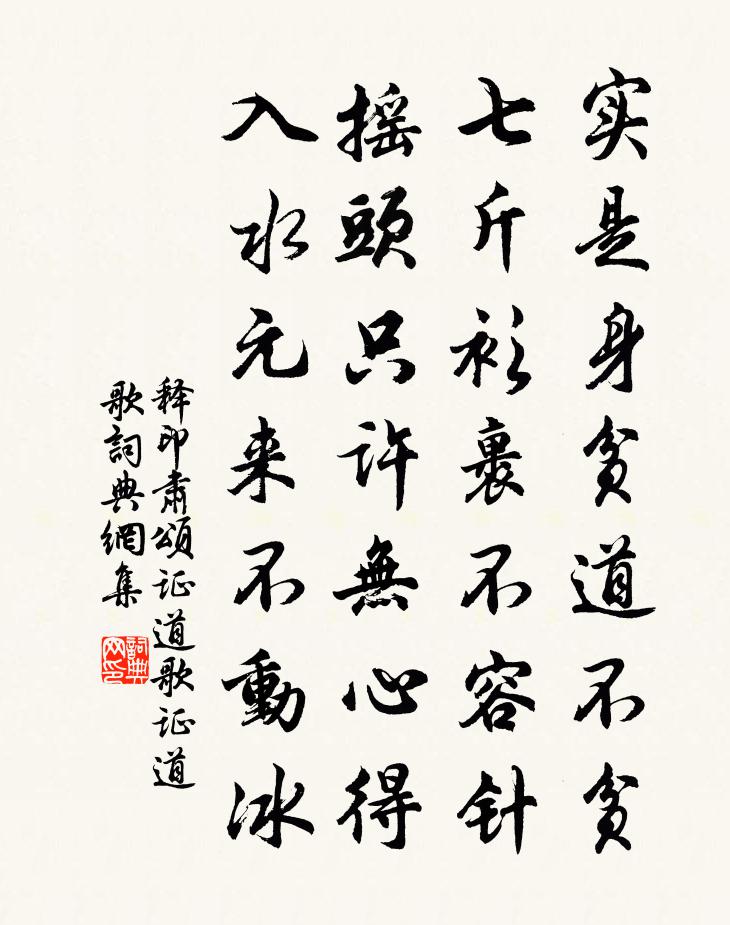 实是身贫道不贫
七斤衫裹不容针
摇頭只许無心得
入水元来不動冰
释印肃頌证道歌证道
歌詞典網集
詞典网印